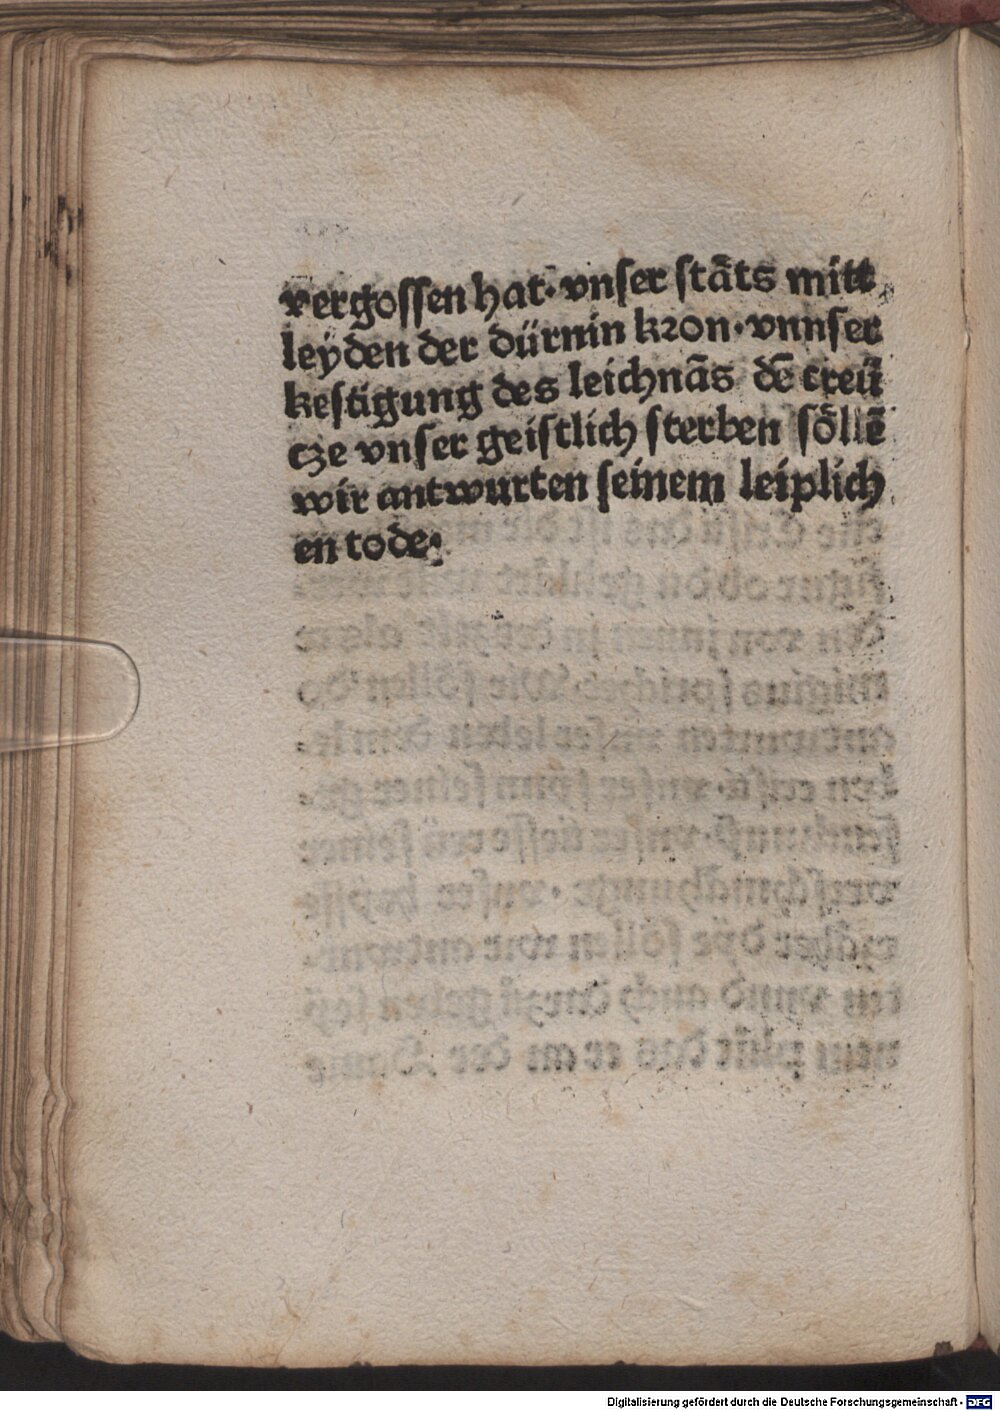 vergossen hat· vnser stãts mitt
leyden der dürnin kron·vnnser
kestigung des leichnãs dē creü
cze vnser geistlich sterben söllē
wir antwurten seinem leiplich
en tode·
Digitalisierung gefördert durch die Deutsche Forschungsgemeinschaft - DFG